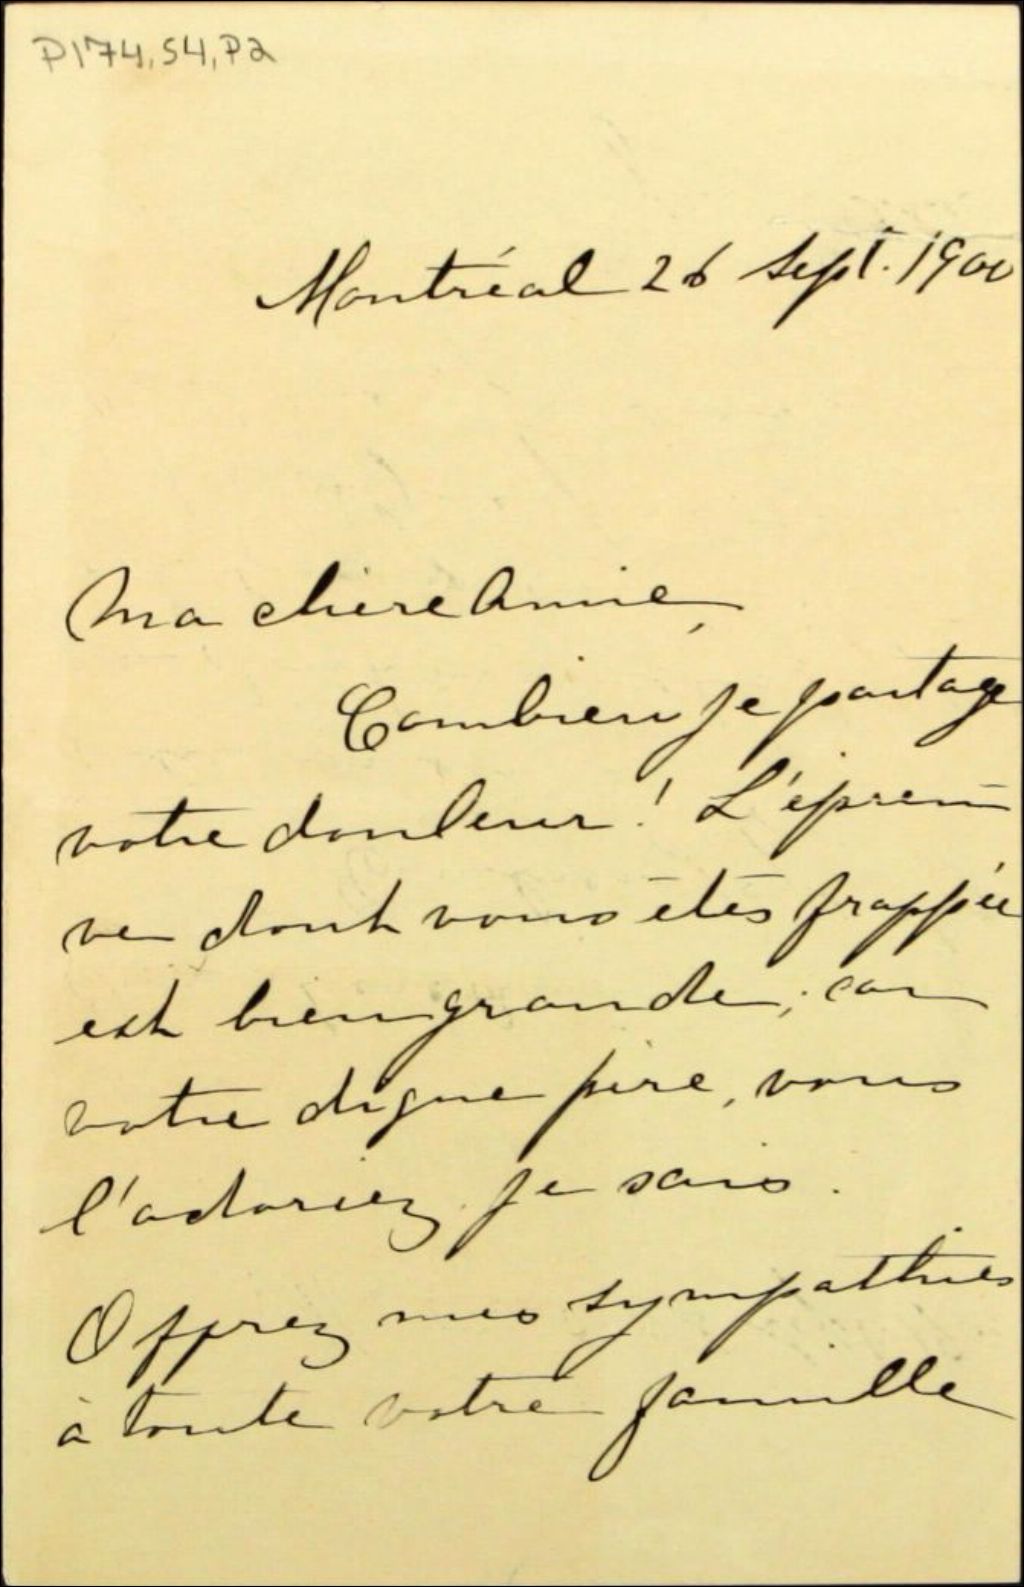 P174,S4,P2
Montréal 26 sept. 1900
Ma chère Annie,
Combien je partage
votre douleur! L'épreu-
ve dont vous êtes frappée
est bien grande; car
votre digne père, vous
l'adoriez je sais.
Offrez mes sympathies
à toute votre famille